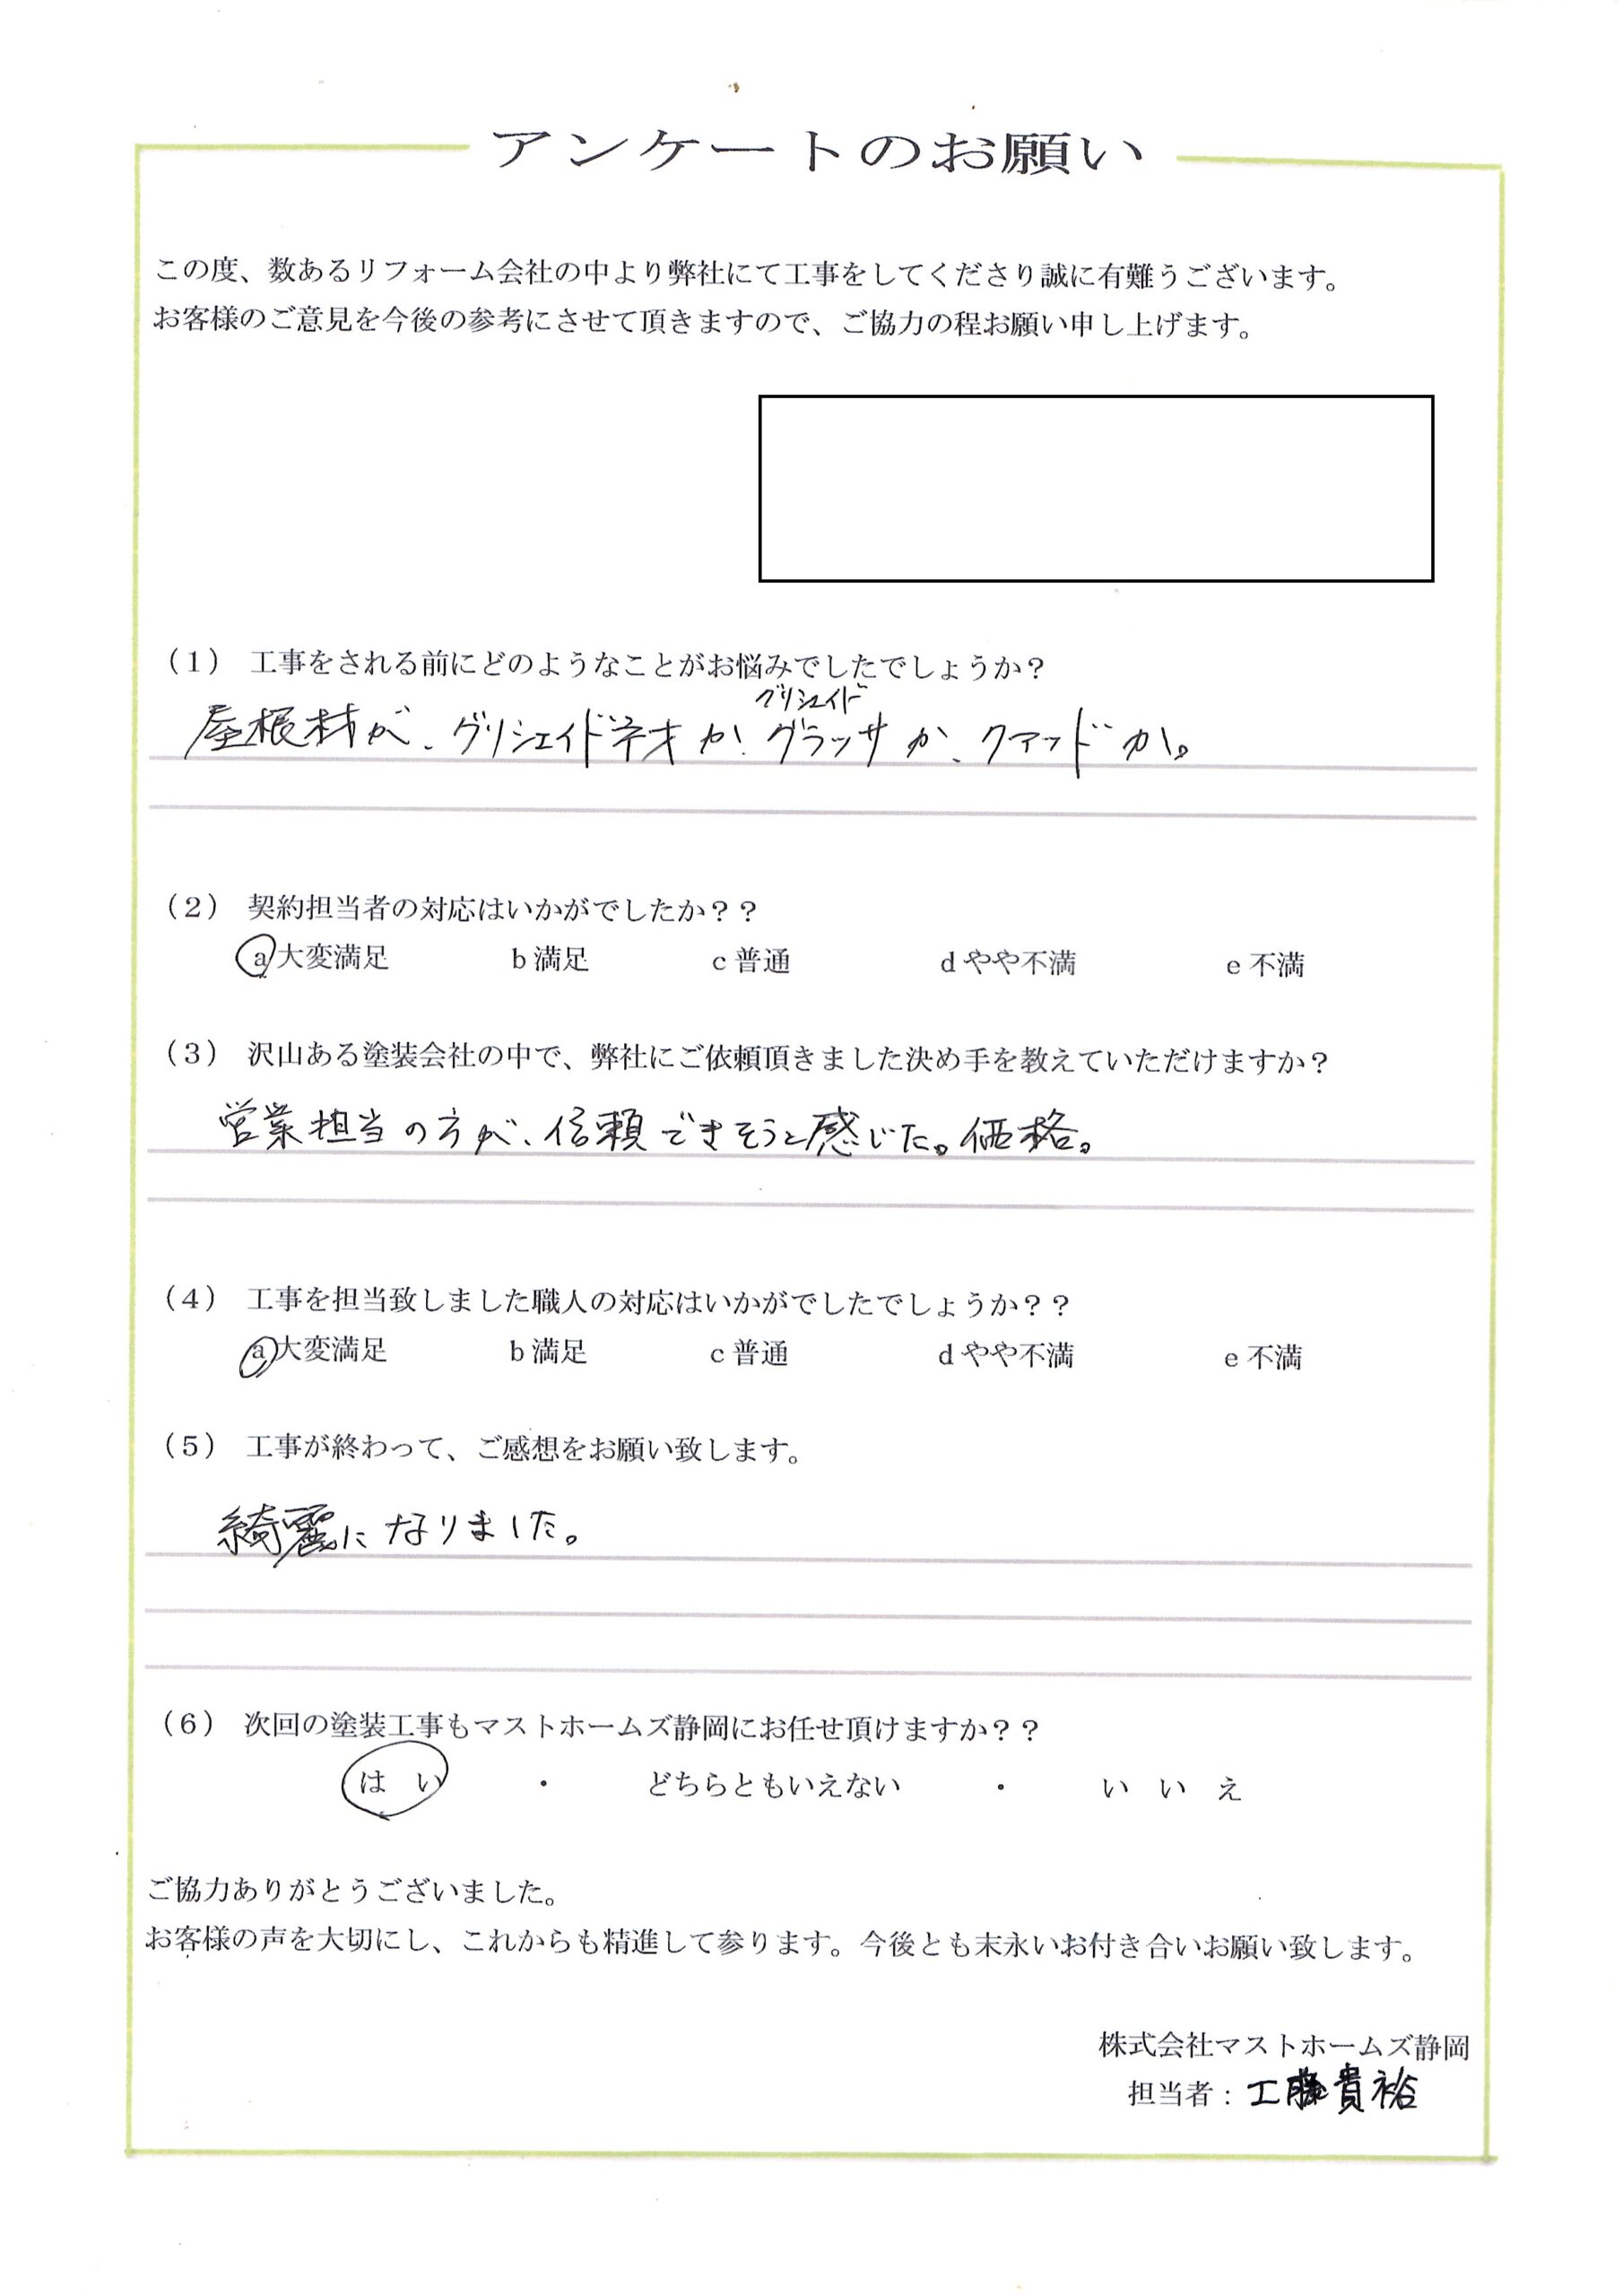 アンケートのお願い
この度、数あるリフォーム会社の中より弊社にて工事をしてくださり誠に有難うございます。
お客様のご意見を今後の参考にさせて頂きますので、ご協力の程お願い申し上げます。
（1） 工事をされる前にどのようなことがお悩みでしたでしょうか？
グリシェイド
屋根材が、グリシェイドネオか、グラッサか、クァッドか。
（2） 契約担当者の対応はいかがでしたか？？
a 大変満足 b 満足 c 普通 d やや不満 e 不満
（3） 沢山ある塗装会社の中で、弊社にご依頼頂きました決め手を教えていただけますか？
営業担当の方が、信頼できそうと感じた。価格。
（4） 工事を担当致しました職人の対応はいかがでしたでしょうか？？
a 大変満足 b 満足 c 普通 d やや不満 e 不満
（5） 工事が終わって、ご感想をお願い致します。
綺麗になりました。
（6） 次回の塗装工事もマストホームズ静岡にお任せ頂けますか？？
は い ・ どちらともいえない ・ い い え
ご協力ありがとうございました。
お客様の声を大切にし、これからも精進して参ります。今後とも末永いお付き合いお願い致します。
株式会社マストホームズ静岡
担当者：工藤貴裕